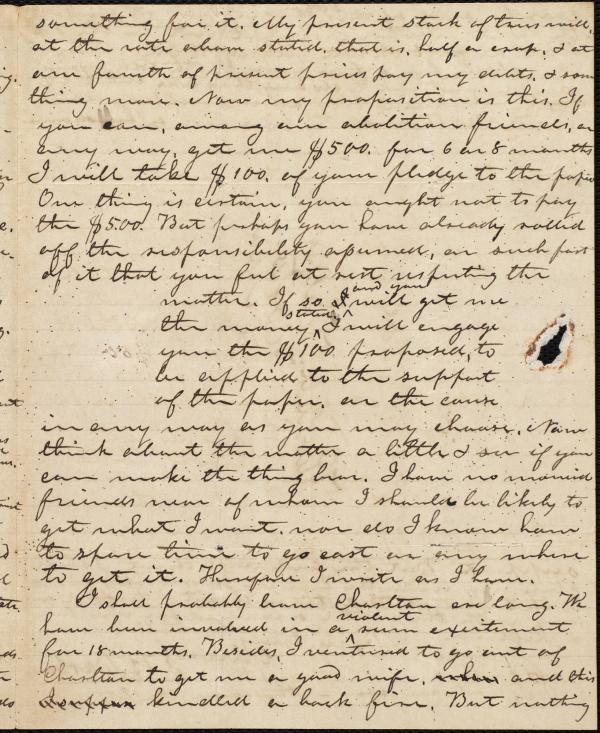 something for it. My present stock of trees will,
at the rate above stated, that is, half a crop, & at
one fourth of present prices pay my debts, & some
thing more. Now my proposition is this. If
you can, among our abolition friends, or
any way, get me $500. for 6 or 8 months
I will take $100. of your pledge to the paper
One thing is certain, you ought not to pay
the $500. But perhaps you have already rolled
off the responsibility assumed, or such part
of it that you feel at rest respecting the
matter. If so & and you will get me
the money stated, I will engage
you the $100 proposed, to
be applied to the support
of the paper, or the cause
in any way as you may choose. Now
think about the matter a little & see if you
can make the thing bear. I have no monied
friends near of whom I should be likely to
get what I want, nor do I know how
to spare time to go east or any where
to get it. Therefore I write as I have.
I shall probably leave Charlton ere long. We
have been involved in a violent excitement
for 18 months. Besides, I ventured to go out of
Charlton to get me a good wife, and this
kindled a back fire. But nothing